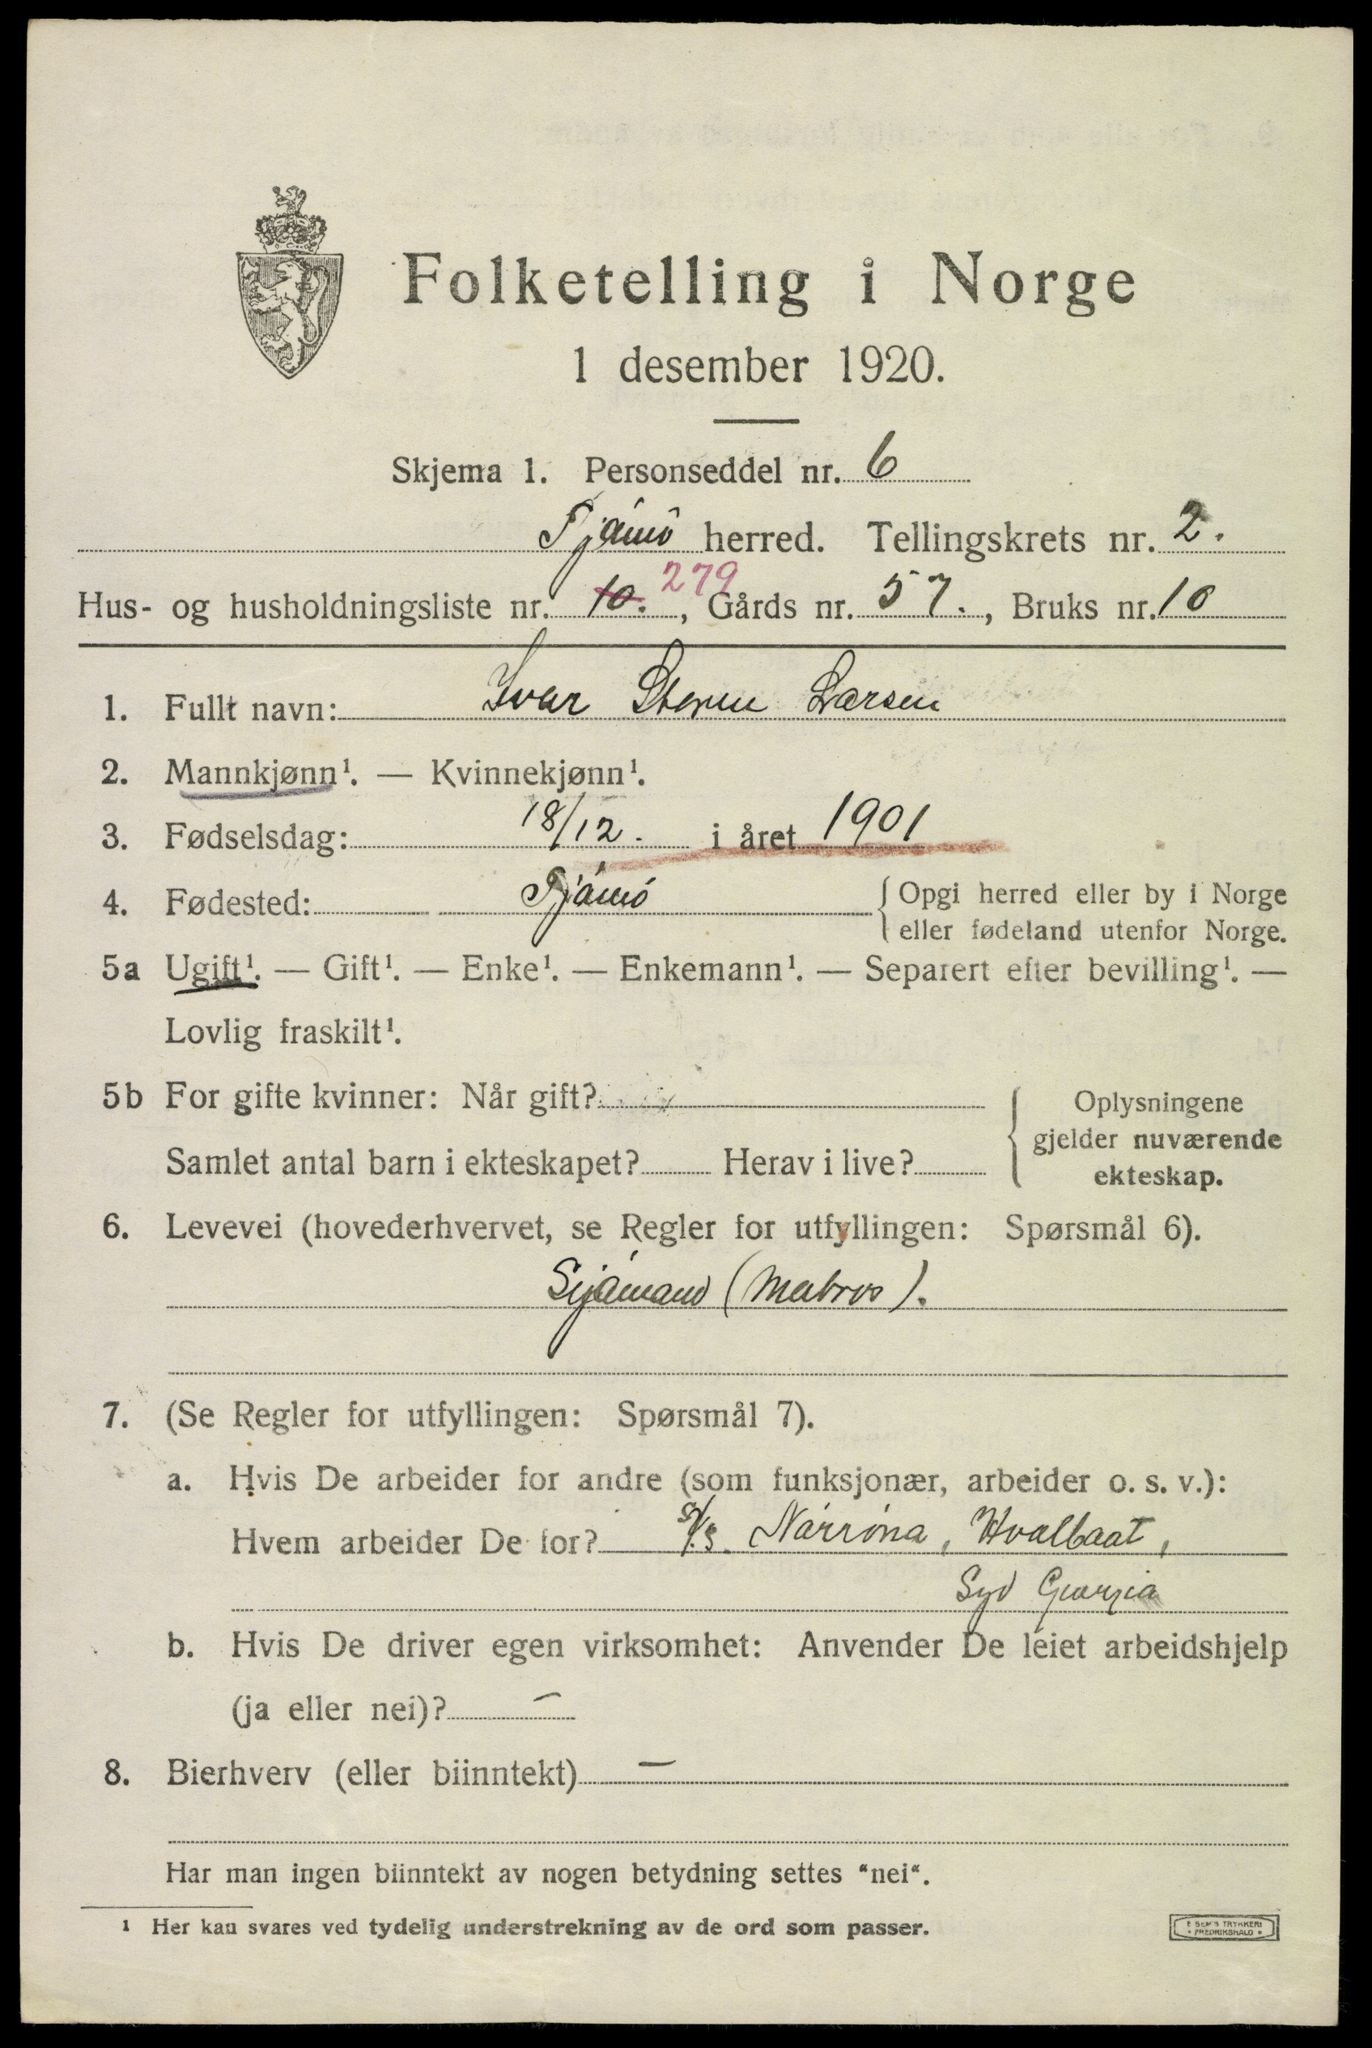 Folketelling i Norge
1 desember 1920.
Skjema 1. Personseddel nr. 6
Tjømø herred. Tellingskrets nr. 2.
Hus- og husholdningsliste nr. 10. 279, Gårds nr. 57., Bruks nr. 10
1. Fullt navn: Ivar Larsen
2. Mannkjønn¹. — Kvinnekjønn¹.
3. Fødselsdag: 18/12. i året 1901
4. Fødested: Tjømø { Opgi herred eller by i Norge
eller fødeland utenfor Norge.
5a Ugift¹. — Gift¹. — Enke¹. — Enkemann¹. — Separert efter bevilling¹. —
Lovlig fraskilt¹.
5b For gifte kvinner: Når gift?
Samlet antal barn i ekteskapet? Herav i live?
{ Oplysningene
gjelder nuværende
ekteskap.
6. Levevei (hovederhvervet, se Regler for utfyllingen: Spørsmål 6).
Sjømand (Matros).
7. (Se Regler for utfyllingen: Spørsmål 7).
a. Hvis De arbeider for andre (som funksjonær, arbeider o. s. v.):
Hvem arbeider De for? S/S. Norrøna, Hvalbaat,
Syd Georgia
b. Hvis De driver egen virksomhet: Anvender De leiet arbeidshjelp
(ja eller nei)? —
8. Bierhverv (eller biinntekt) —
Har man ingen biinntekt av nogen betydning settes "nei".
¹ Her kan svares ved tydelig understrekning av de ord som passer.
E SEM'S TRYKKERI
FREDRIKSHALD